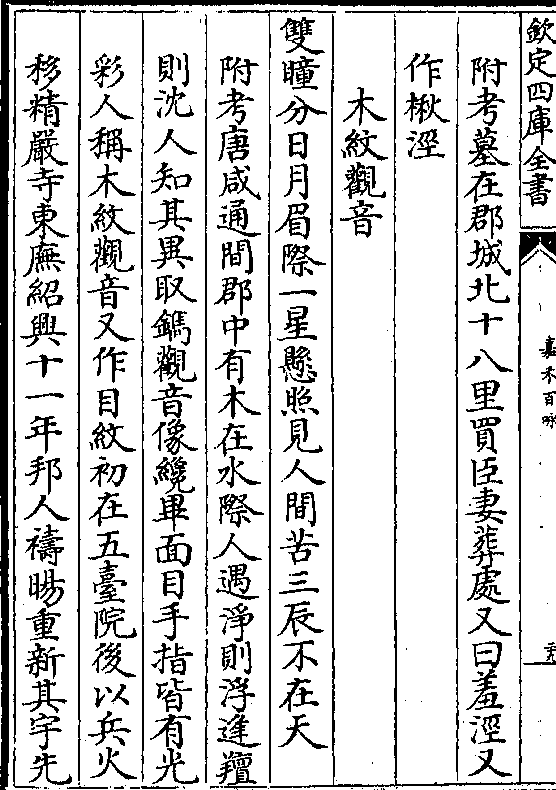 欽定四庫全書
嘉禾百咏
附考墓在郡城北十八里買臣妻葬處又曰羞涇又
作楸涇
木紋觀音
雙瞳分日月眉際一星懸照見人間苦三辰不在天
附考唐咸通間郡中有木在水際人遇淨則浮逢羶
則沈人知其異取鐫觀音像纔畢面目手指皆有光
彩人稱木紋觀音又作目紋初在五臺院後以兵火
移精嚴寺東廡紹興十一年邦人禱暘重新其宇先